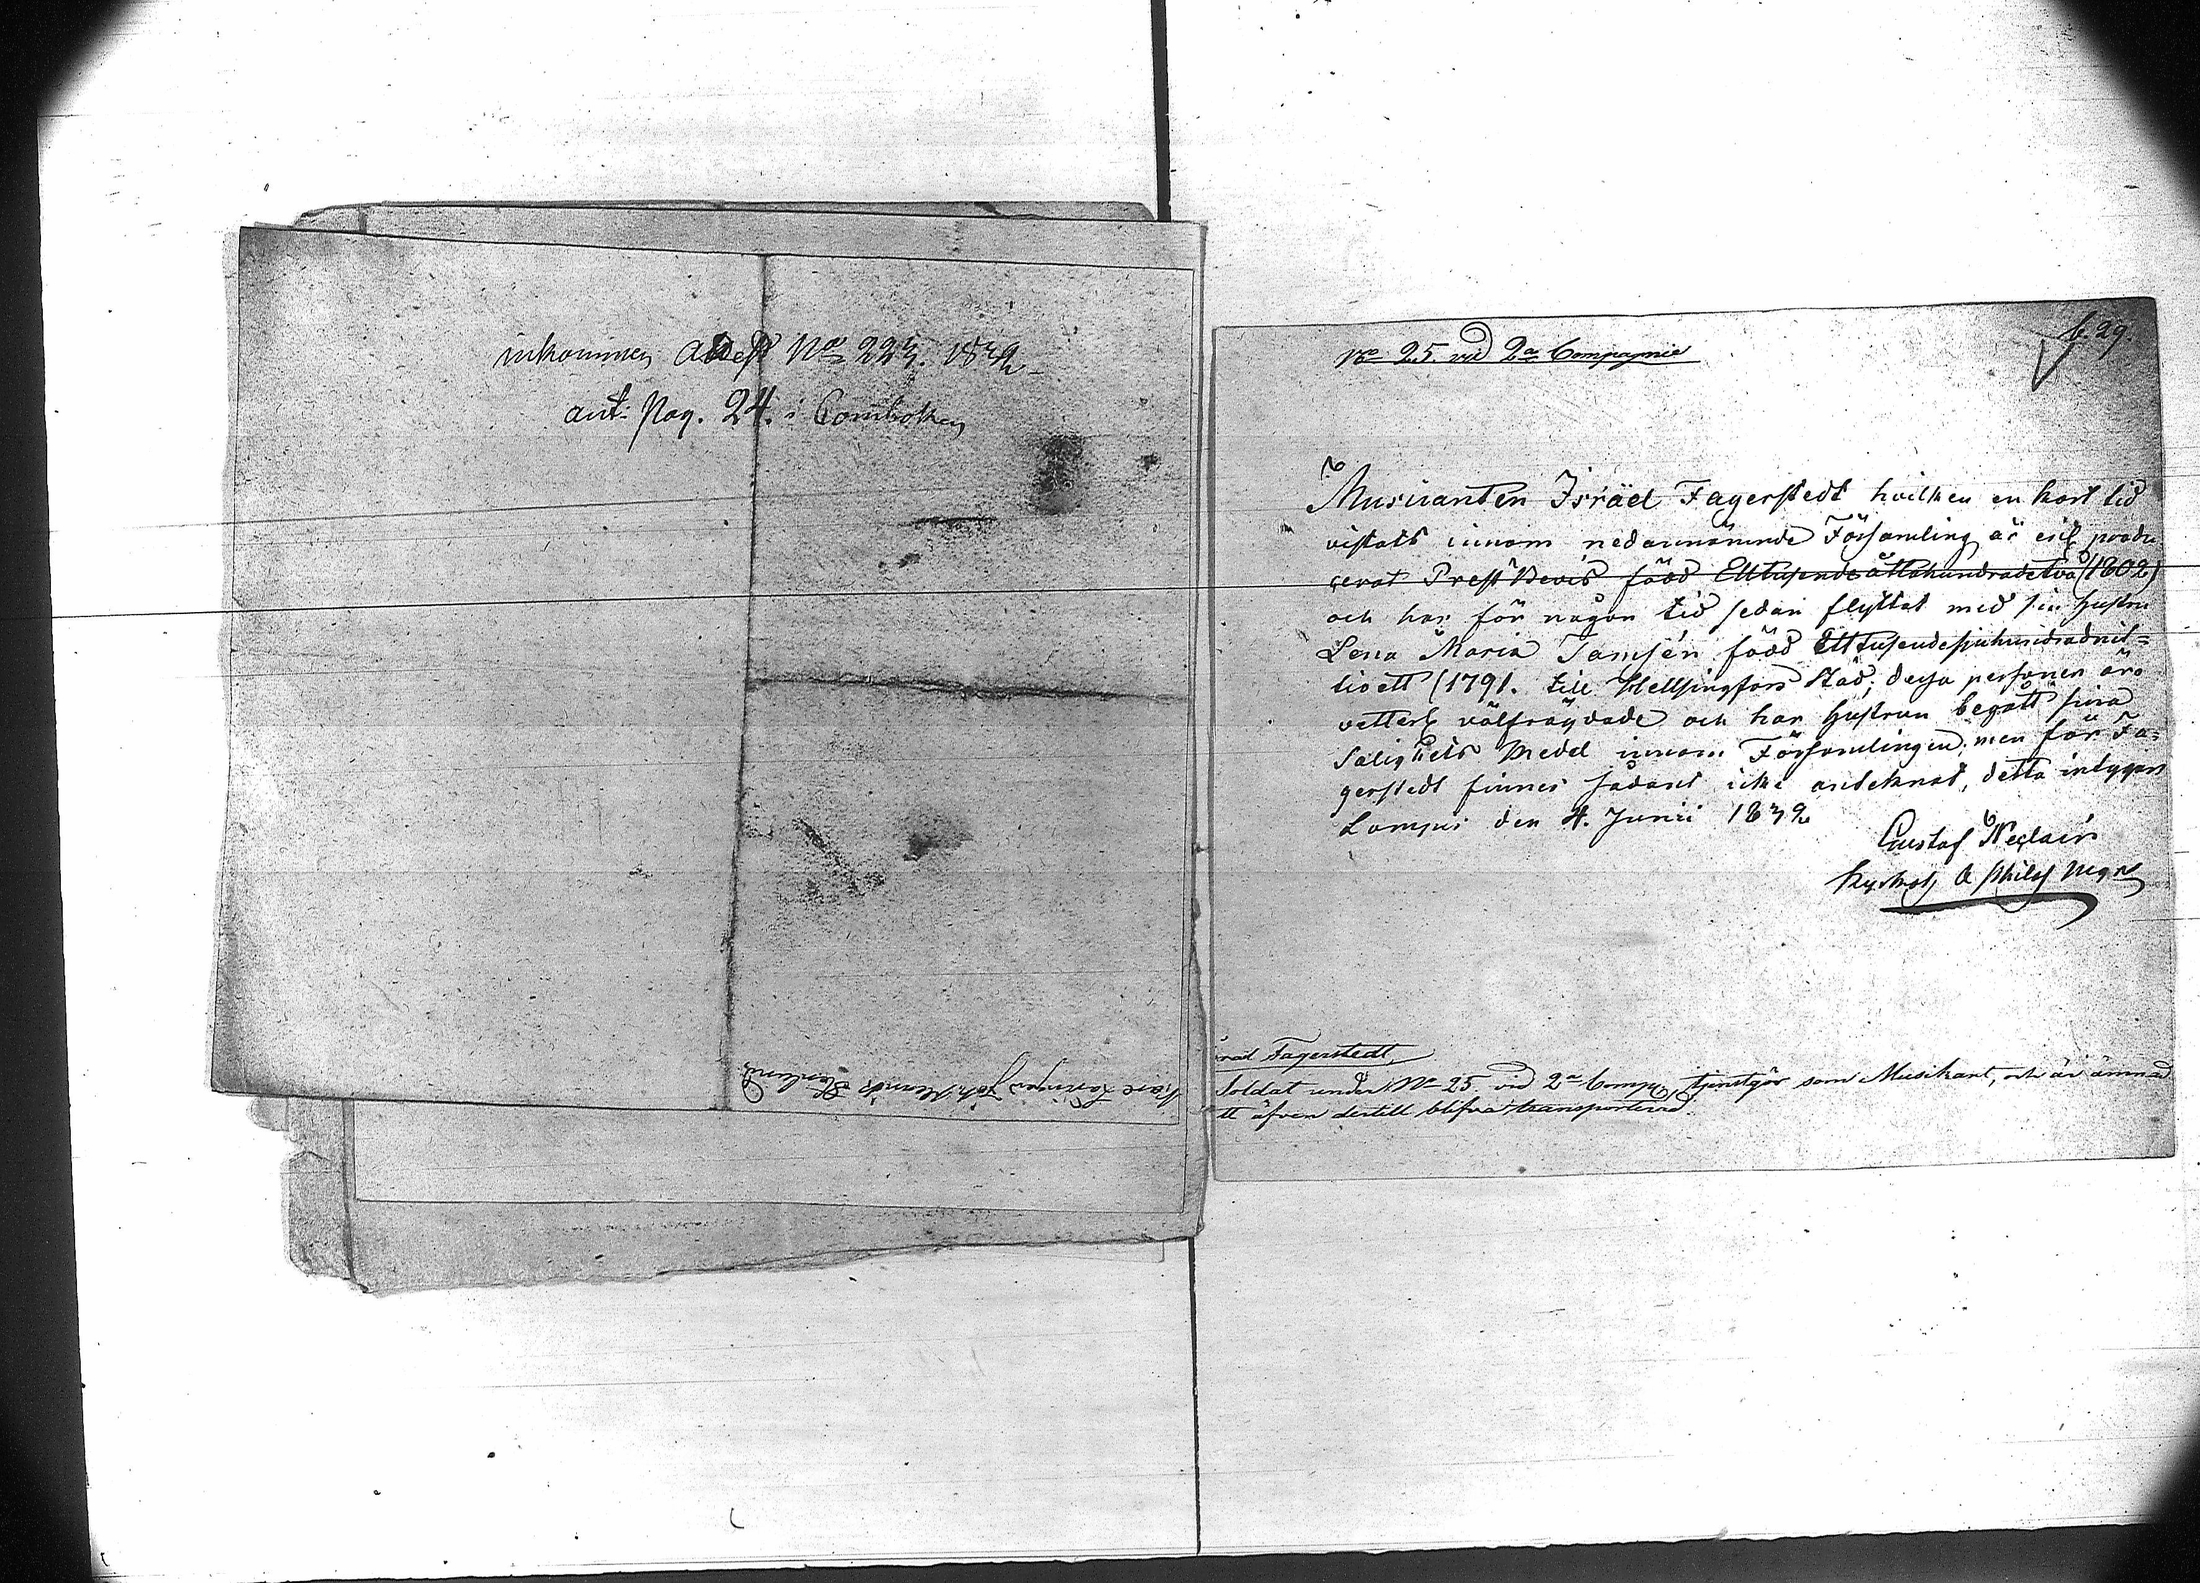 inkommen attest No 223. 1832
ant. Pag. 24. i Comboken
No 25 vid 2a Compagnie
b. 29.
Musicanten Isräel Fagerstedt hvilken en kort tid
vistats innom nedannämnde Församling är enl. produ
cerat Prest Bevis född Ettusendeåttahundradetvå (1802)
och har för någon tid sedan flyttat med sin Hustru
Lena Maria Jamsén född Ettusendesjuhundradnit-
tioett (1791. till Helsingfors Stad; dessa personer äro
vetterl. välfräydade och har Hustrun begått sina
Salighets Medel innom Församlingen; men för Fa-
gerstedt finnes sådant icke anteknat, detta intygar
Lampis den 4. Junii 1832
Gustaf
Soldat under No 25. vid 2a Comp. tjenstgör som Musikant, och är ämnad
tt äfven dertill blifva transporterad.